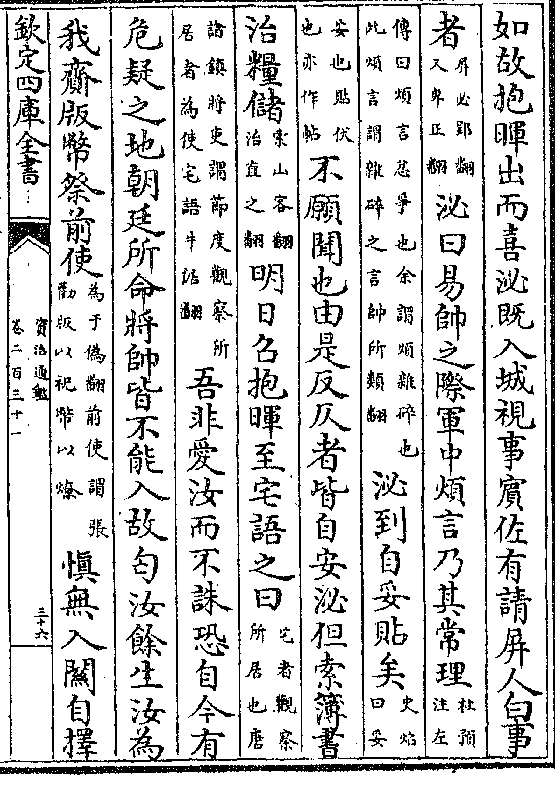 如故抱暉出而喜泌既入城視事賓佐有請屏人白事
者屏必郢翻又卑正翻泌曰易帥之際軍中煩言乃其常理杜預注左
傳曰煩言忿爭也余謂煩雜碎也此煩言謂雜碎之言帥所類翻泌到自妥貼矣史炤曰妥
安也貼伏也亦作帖不願聞也由是反仄者皆自安泌但索簿書
治糧儲索山客翻治直之翻明日召抱暉至宅語之曰宅者觀察所居也唐
諸鎮將吏謂節度觀察所居者為使宅語牛倨翻吾非愛汝而不誅恐自今有
危疑之地朝廷所命將帥皆不能入故匄汝餘生汝為
我齎版幣祭前使為于偽翻前使謂張勸版以祝幣以燎慎無入關自擇
欽定四庫全書
資治通鑑
卷二百三十一
三十六